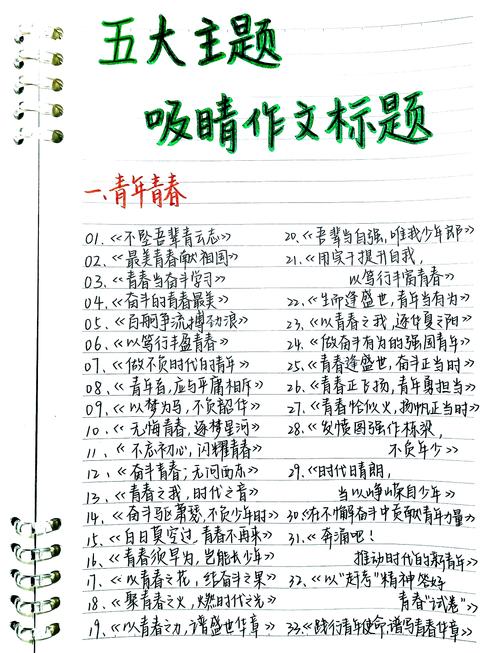 五大主题
吸睛作文标题
一、青年青春
01.《不坠吾辈青云志》
02.《最美青春献祖国》
03.《青春当奋斗学习》
04.《奋斗的青春最美》
05.《百舸争流搏劲浪》
06.《以笃行丰盈青春》
07.《做不负时代的青年》
08.《青年者,应与平庸相斥》
09.《以梦为马,不负韶华》
10.《无悔青春,逐梦星河》
11.《不忘初心,闪耀青春》
12.《奋斗青春;无问西东》
13.《青春之我,时代之音》
14.《奋斗驱萧瑟,不负少年时》
15.《白日莫空过,青春不再来》
16.《青春须早为,岂能长少年》
17.《以青春之花,结奋斗之果》
18.《聚青春之火,燃时代之光》
19.《以青春之力,谱盛世华章》
20.《吾辈当自强,唯我少年郎》
21.《用实干提升自我,
以笃行丰富青春》
22.《生而逢盛世,青年当有为》
23.《以青春之我,逐华夏之阳》
24.《做奋斗有为的强国青年》
25.《青春逢盛世,奋斗正当时》
26.《青春正飞扬,青年勇担当》
27.《青春恰似火,扬帆正当时》
28.《发愤图强作栋梁,
不负年少》
29.《时代日晴朗,
当以峥嵘自少年》
30.《在不懈奋斗中贡献青年力量》
31.《奔涌吧!
推动时代的新青年》
32.《以“赶考”精神答好
青春“试卷”》
33.《践行青年使命,谱写青春华章》